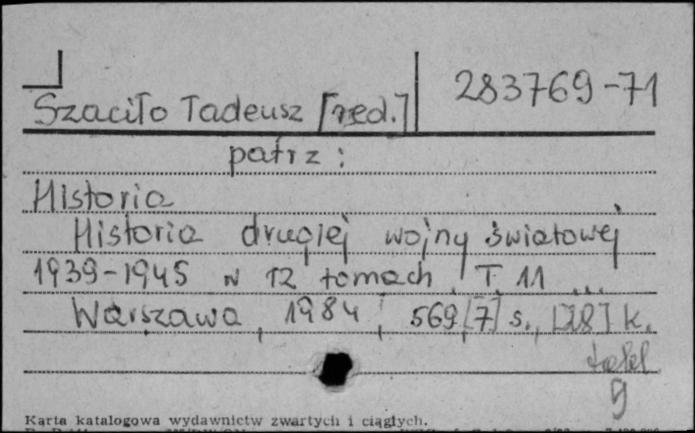 Szaciło Tadeusz [red.] 283769-71
patrz:
Historia
Historia drugiej wojny światowej
1939-1945 w 12 tomach. T. 11 ...
Warszawa, 1984, 569,[7] s., [28] k.
tabl
9
Karta katalogowa wydawnictw zwartych i ciągłych.